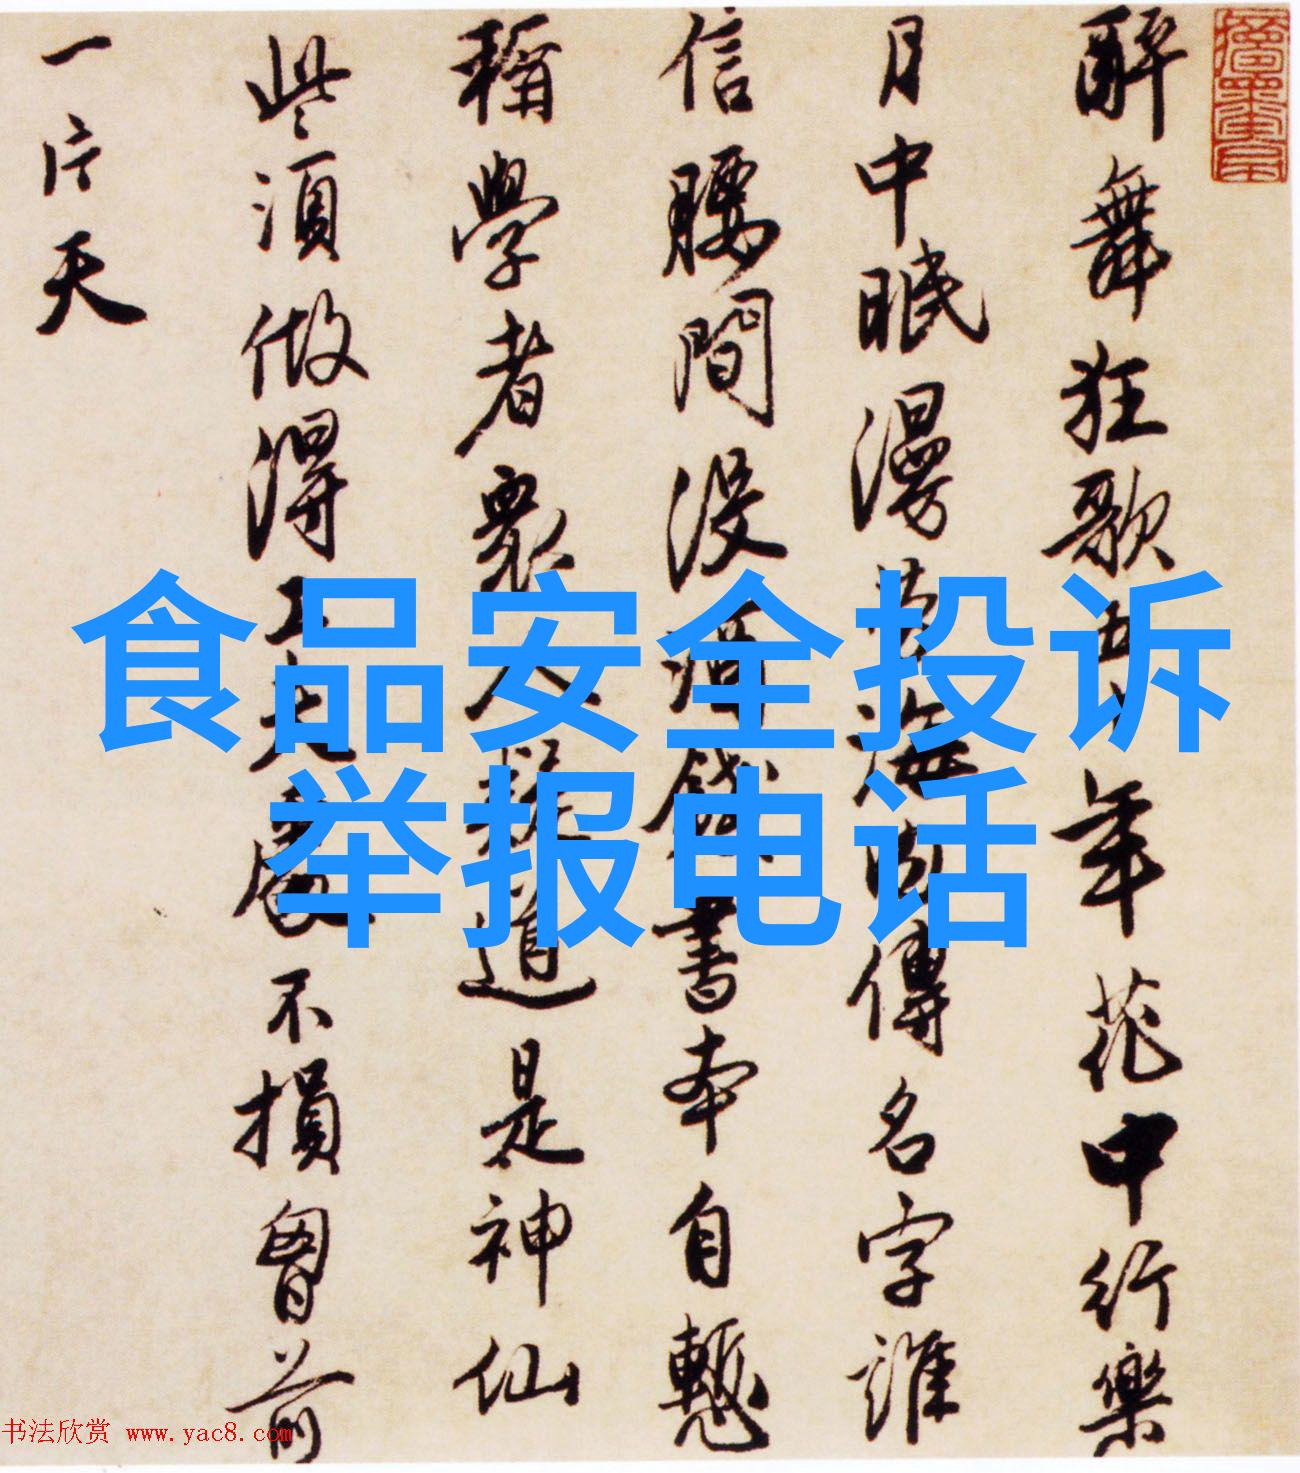 醉舞狂歌五十年花中行樂
月中眠漫勞海內傳名字誰
信腰間沒酒錢書本自慙
稱學者衆人疑道是神仙
些須做得工夫處不損胷前
一片天
食品安全投诉
举报电话
书法欣赏 www.yac8.com